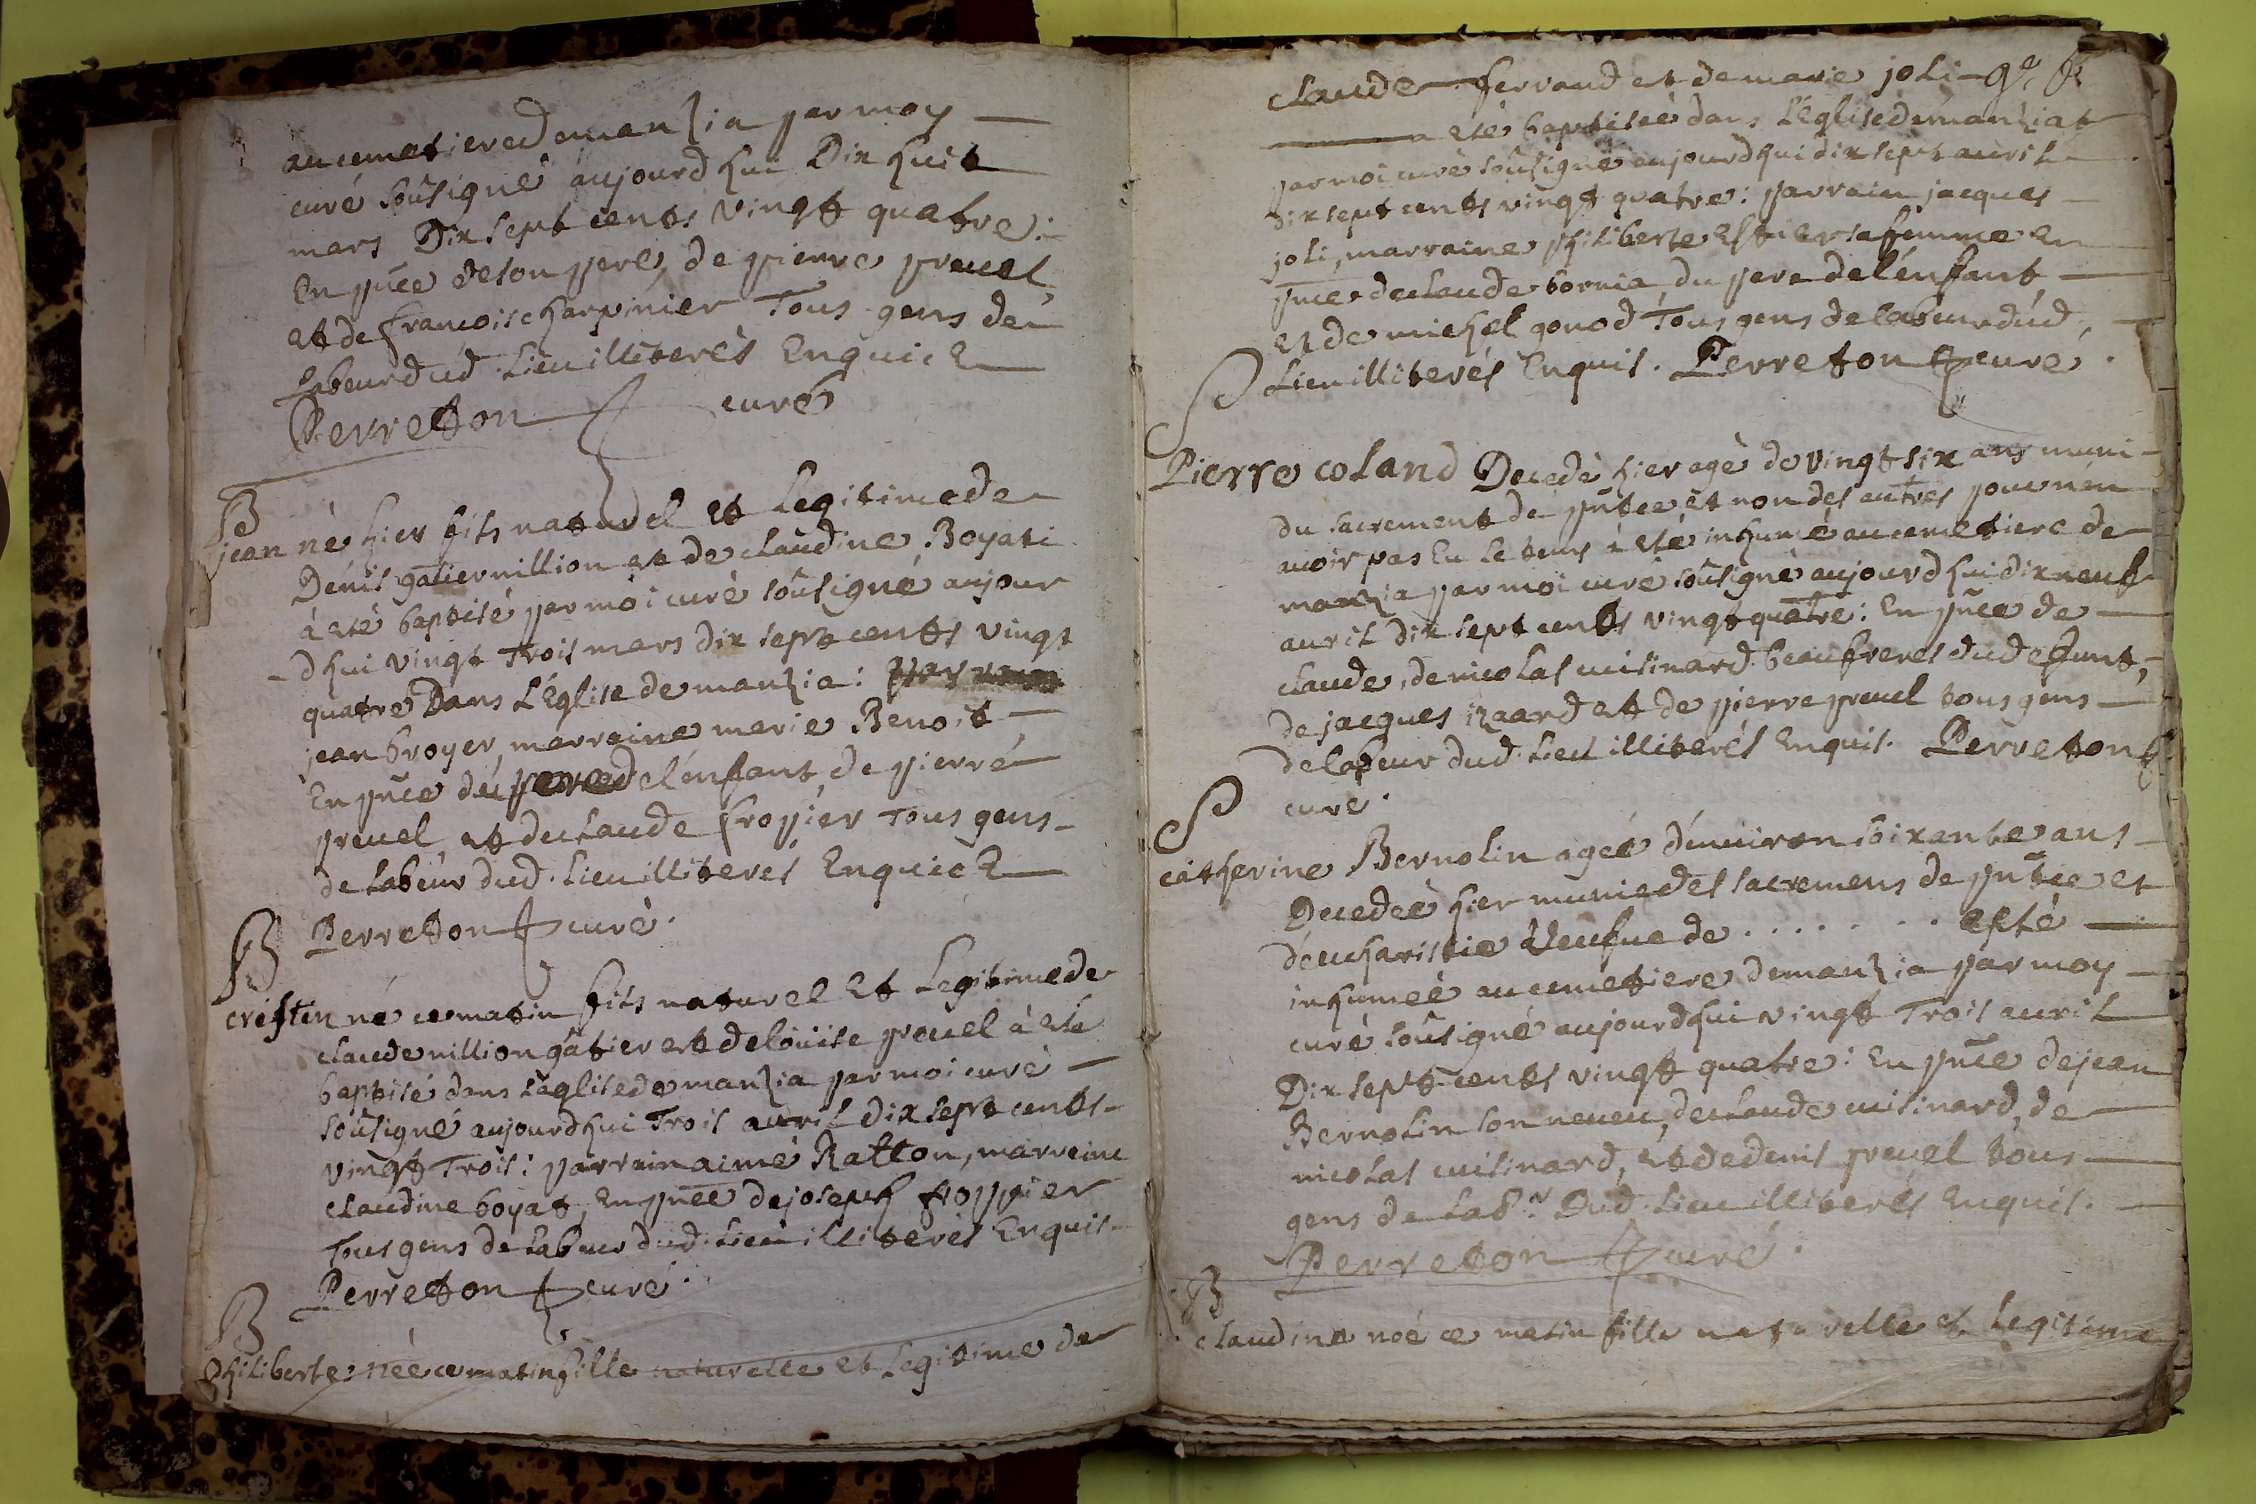 au cemetiere de manzia par moy
curé soûsigné aujourd hui Dix huit
mars Dix sept cents vingt quatre :
En pñce de son pere, de pierre preuel
et de francois charpinier Tous gens de
labeur dud. Lieu illiterés Enquiez
Perreton curé
B
jean né hier fils naturel et Legitime de
Dénis gatier nillion et de claudine Boyati
à eté baptisé par moi curé soûsigné aujour
d hui vingt Trois mars dix sept cents vingt
quatre Dans L'Eglise de manzia :
jean broyer, marraine marie Benoit
En pñce du pere de l'énfant, de pierre
preuel et de claude fropier Tous gens
de labeur dud. Lieu illiterés Enquiez
Perreton curé.
B
créstin né ce matin fils naturel et Legitime de
claude nillion gatier et de loüise preuel à eté
baptisé dans L'eglise de manzia par moi curé
soûsigné aujourd hui Trois avril dix sept cents
vingt Trois : parrain aimé Ratton, marreine
claudine boyat, En pñce de joseph froppier
Tous gens de labeur dud. Lieu illiterés Enquis
Perreton curé.
B
philiberte née ce matin fille naturelle et Legitime de
claude ferraud et de marie joli
a eté baptiseé dans L'Eglise de manziat
par moi curé soûsigné aujourd hui dix sept auril
dix sept cents vingt quatre : parrain jacques
joli, marraine philiberte sa femme En
pñce de claude bornia, du pere de l'énfant
et de michel gonod Tous gens de labeur dud.
Lieu illiterés Enquis. Perreton curé.
S
Pierre coland Decedé hier agé de vingt six ans muni
du sacrement de pñtce et non des autres pour n'en
avoir pas Eu le tems à eté inhumé au cemetiere de
manzia par moi curé soûsigné aujourd hui dix neuf
auril dix sept cents vingt quatre : En pñce de
claude, de nicolas cuisinard beaufreres du defunt,
de jacques izaard et de pierre preuel tous gens
de labeur dud. Lieu illiterés Enquis. Perreton
curé.
S
catherine Bernolin ageé d'enuiron soixante ans
Decedeé hier munie des sacremens de pñtce et
d'eucharistie Veufue de . . . . . . . a esté
inhumeé au cemetiere de manzia par moy
curé soûsigné aujourd hui vingt Trois auril
Dix sept cents vingt quatre : En pñce de jean
Bernolin son neueu, de claude cuisinard, de
nicolas cuisinard, et de denis preuel tous
gens de lab.r Dud. Lieu illiterés Enquis.
Perreton curé.
B
claudine née ce matin fille naturelle et Legitime